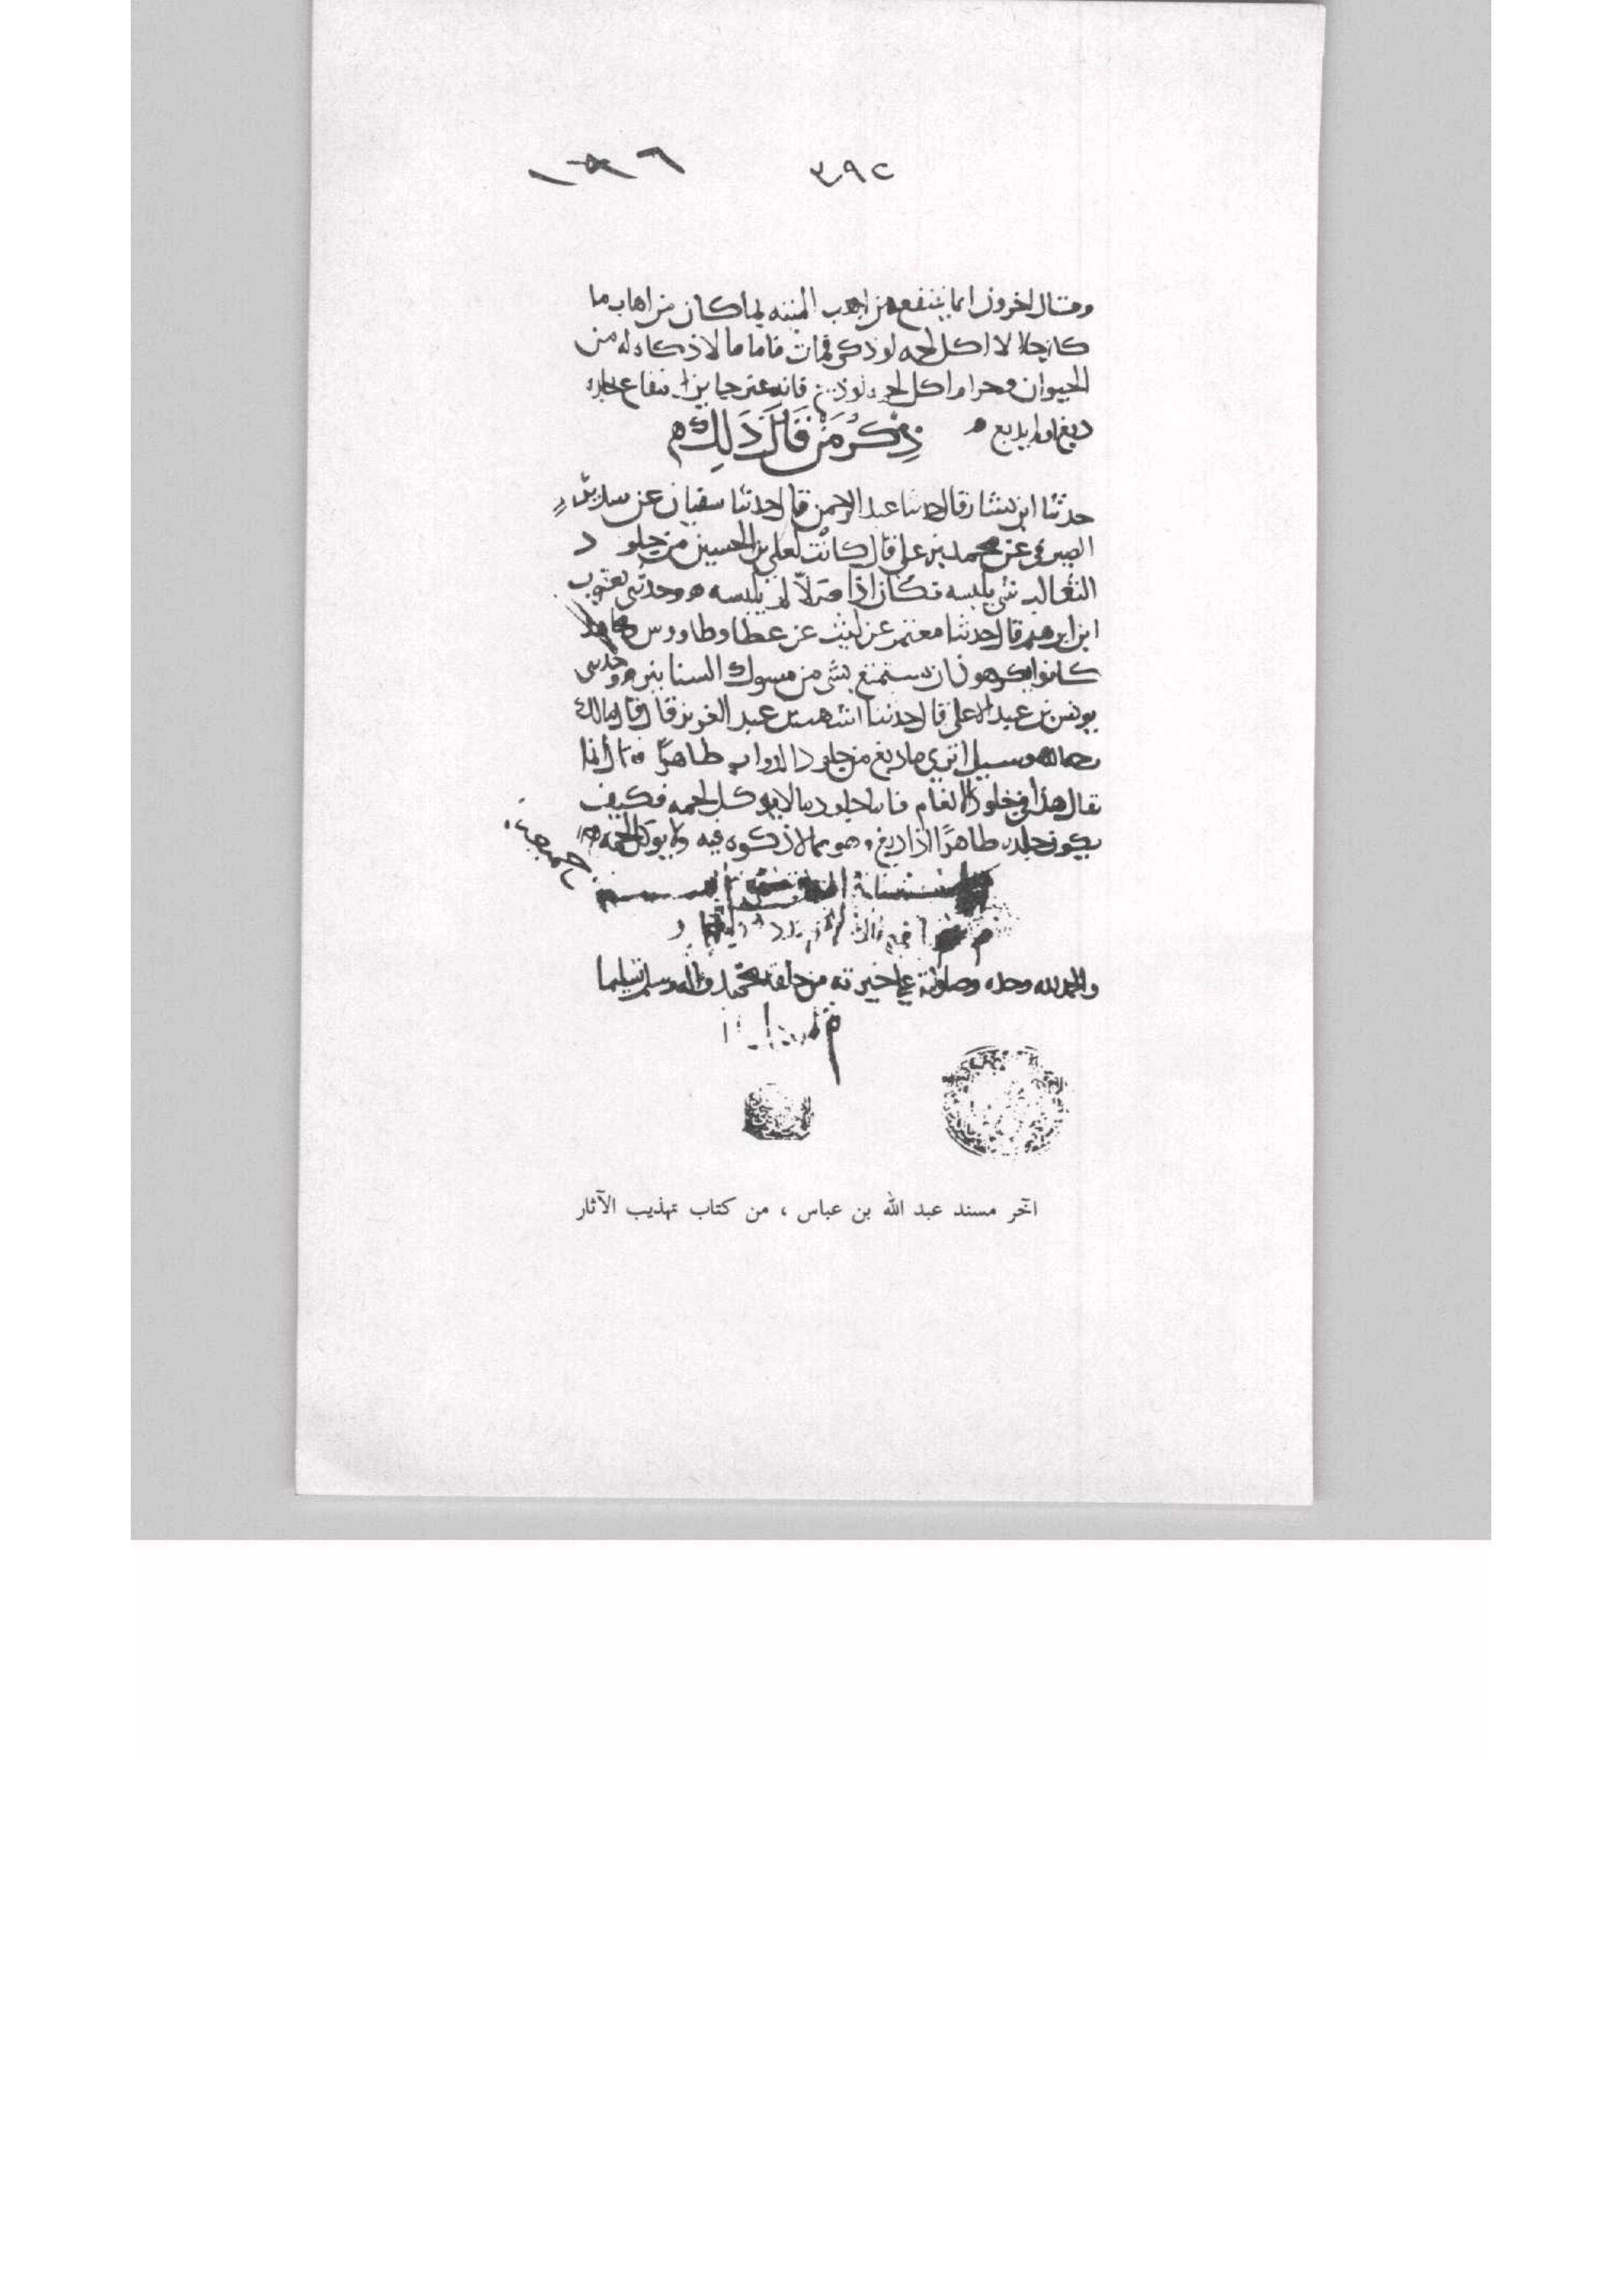 ٣٩٢
وقال اخرون انما ينتفع من اهب الميته بما كان من اهاب ما
كان حلالا اكل لحمه لو ذكى فمات فاما ما لا ذكاه له من
الحيوان وحرام اكل لحمه لو ذبح فانه غير جايز الانتفاع بجلده
دبغ او لم يدبغ ه
ذِكْرُ مَنْ قَالَ ذَلِكَ ه
حدثنا ابن بشار قال حدثنا عبد الرحمن قال حدثنا سفيان عن سدير
الصيرفي عن محمد بن علي قال كانت لعلي بن الحسين من جلو د
الثعالب شي يلبسه فكان اذا صلا لم يلبسه ه وحدثني يعقوب
ابن ابرهيم قال حدثنا معتمر عن ليث عن عطا وطاووس ومجاهد
كانوا يكرهون ان يستمتع بشي من مسوك السنانير ه وحدثني
يونس بن عبد الاعلى قال حدثنا اشهب بن عبد العزيز قال قال مالك
وسيل اترى ما دبغ من جلود الدواب طاهرًا
فقال هذا في جلود الانعام فاما جلود ما لا يوكل لحمه فكيف
يكون جلده طاهرًا اذا دبغ وهو مما لا ذكوه فيه ولا يوكل لحمه ه
والحمد لله وحده وصلواته على خيرته من خلقه محمد واله وسلم تسليما
آخر مسند عبد الله بن عباس ، من كتاب تهذيب الآثار